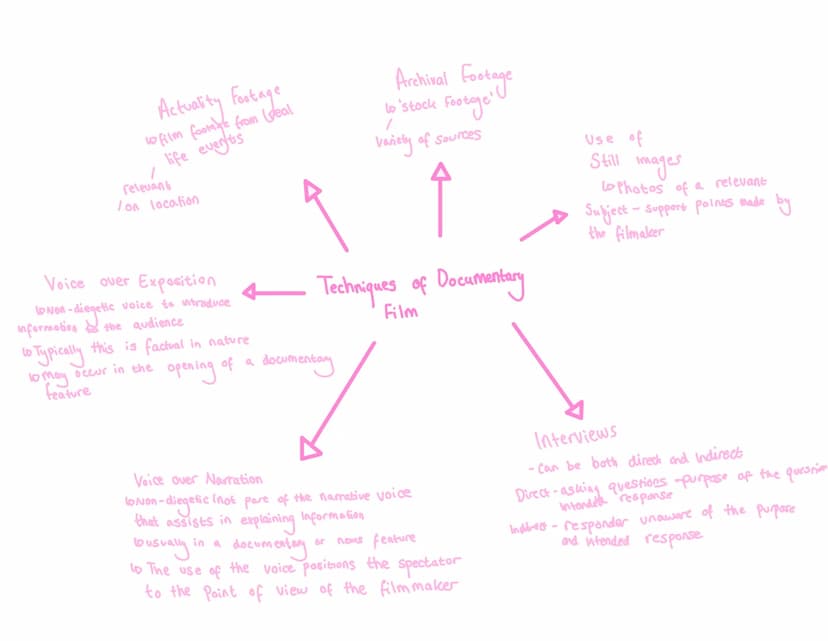 Actuality Footage
↳ film footage from real
life events
relevant
on location
Archival Footage
↳ 'stock footage'
variety of sources
Use of
Still images
↳ Photos of a relevant
Subject - support points made by
the filmaker
Techniques of Documentary
Film
Voice over Exposition
↳ Non-diegetic voice to introduce
information to the audience
↳ Typically this is factual in nature
↳ May occur in the opening of a documentary
feature
Voice over Narration
↳ Non-diegetic (not part of the narrative voice
that assists in explaining information
↳ usually in a documentary or news feature
↳ The use of the voice positions the spectator
to the point of view of the filmmaker
Interviews
- Can be both direct and Indirect
Direct - asking questions - purpose of the
intended response
Indirect - responder unaware of the purpose
and intended response